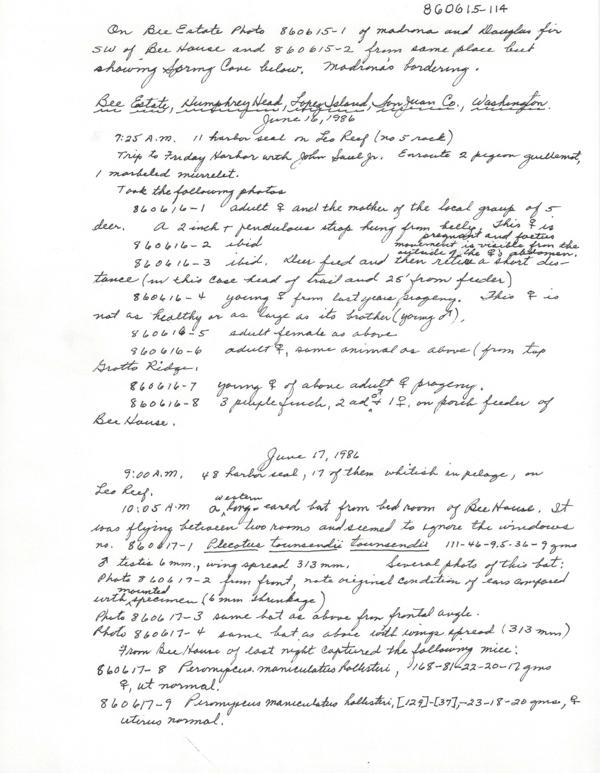 860615-114
On Bee Estate Photo 860615-1 of madrona and Douglas fir
SW of Bee House and 860615-2 from same place but
showing Spring Cove below. Madrona's bordering.
Bee Estate, Humphrey Head, Lopez Island, San Juan Co., Washington.
June 16, 1986
7:25 A.M. 11 harbor seal on Leo Reef (no 5 rock)
Trip to Friday Harbor with John Saul Jr. Enroute 2 pigeon guillemot,
1 marbeled murrelet.
Took the following photos
860616-1 adult ♀ and the mother of the local group of 5
deer. A 2 inch + pendulous strap hung from belly. This ♀ is
pregnant and foetus
860616-2 ibid movement is visible from the
outside of the ♀'s abdomen.
860616-3 ibid. Deer fed and then retire a short dis-
tance (in this case head of trail and 25' from feeder)
860616-4 young ♀ from last years progeny. This ♀ is
not as healthy or as large as its brother (young ♂).
860616-5 adult female as above
860616-6 adult ♀, same animal as above (from top
Grotto Ridge.
860616-7 young ♀ of above adult ♀ progeny.
860616-8 3 purple finch, 2 ad ♂ + 1 ♀, on porch feeder of
Bee House.
June 17, 1986
9:00 A.M. 48 harbor seal, 17 of them whitish in pelage, on
Leo Reef.
10:05 A.M a western long-eared bat from bed room of Bee House. It
was flying between two rooms and seemed to ignore the windows
no. 860617-1 Plecotus townsendii townsendii 111-46-9.5-36-9 gms
♂ testis 6 mm., wing spread 313 mm. Several photo of this bat:
Photo 860617-2 from front, note original condition of ears compared
with mounted specimen (6 mm shrinkage)
Photo 860617-3 same bat as above from frontal angle.
Photo 860617-4 same bat as above with wings spread (313 mm)
From Bee House of last night captured the following mice:
860617-8 Peromyscus maniculatus hollisteri, 168-81-22-20-17 gms
♀, ut normal.
860617-9 Peromyscus maniculatus hollisteri, [129]-[37]-23-18-20 gms, ♀
uterus normal.